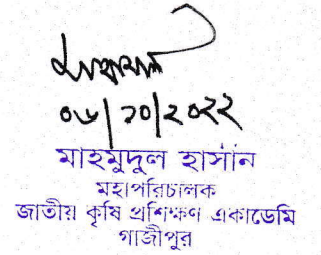 ০৬/১০/২০২২
মাহমুদুল হাসান
মহাপরিচালক
জাতীয় কৃষি প্রশিক্ষণ একাডেমি
গাজীপুর